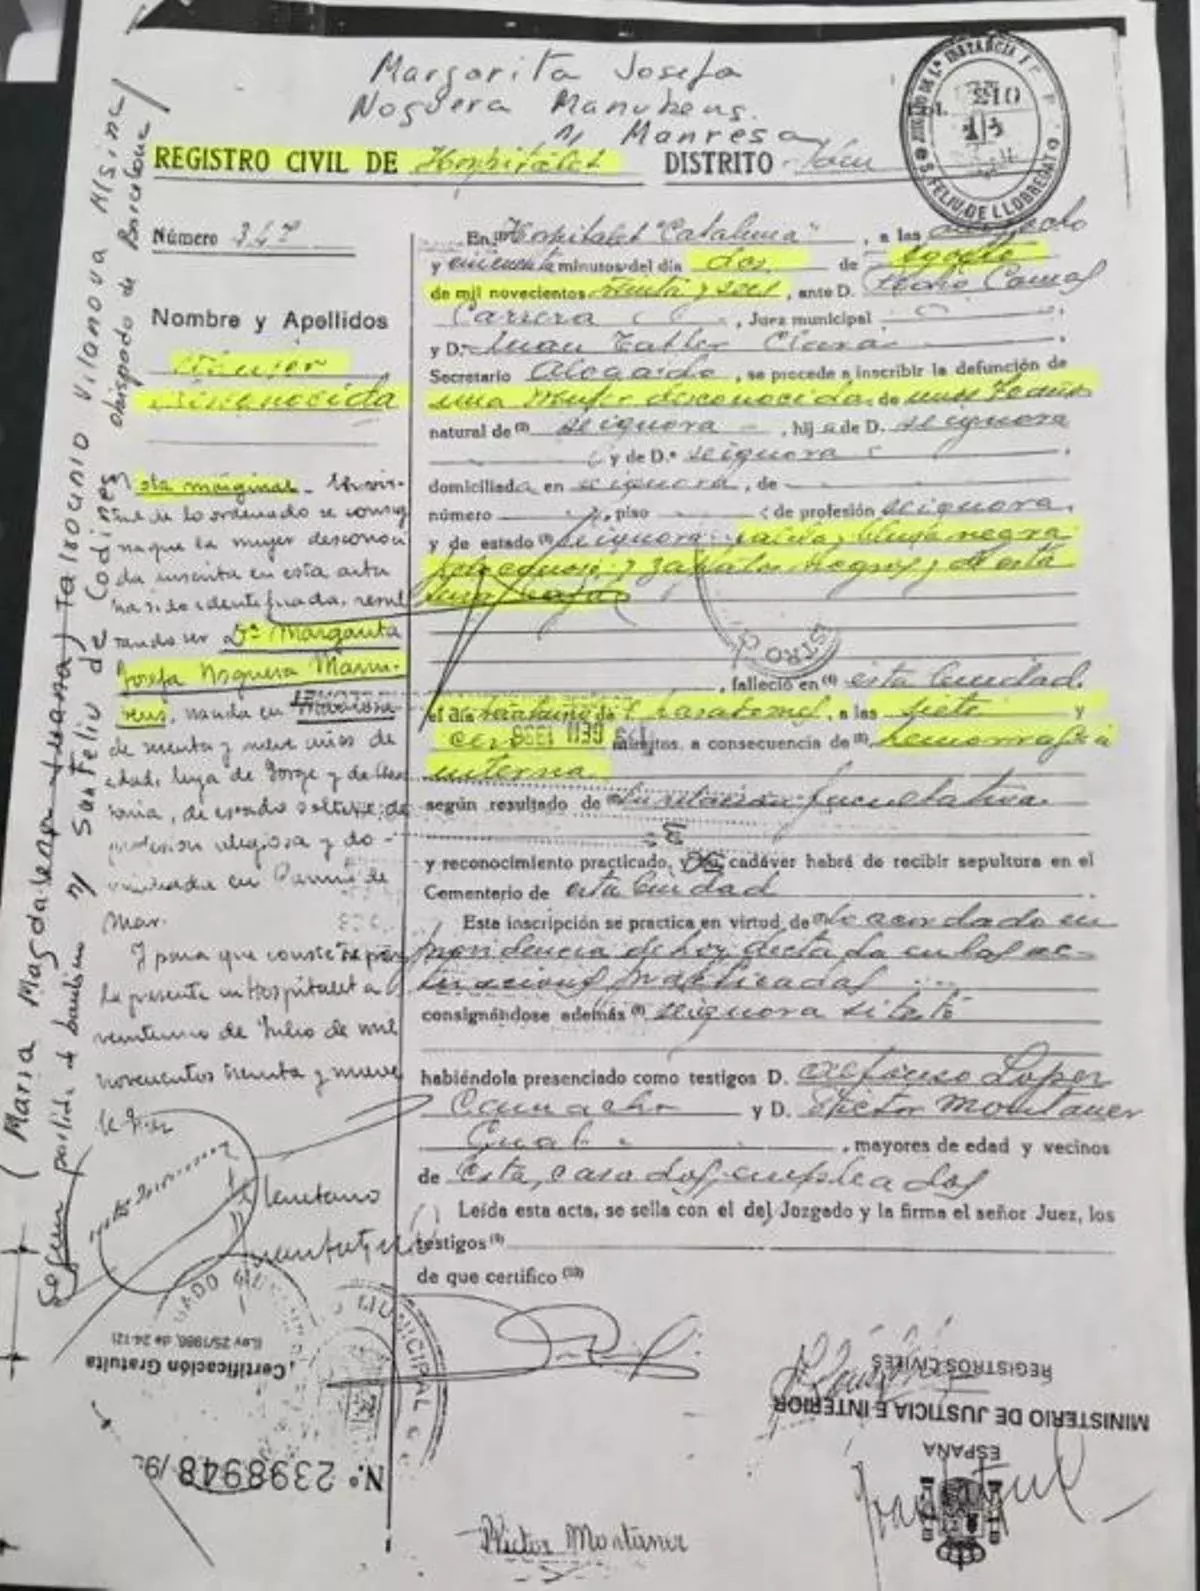 Margarita Josefa
Noguera Manubens.
n/ Manresa
REGISTRO CIVIL DE Hospitalet DISTRITO
JUZGADO DE 1.ª INSTANCIA
S. FELIU DE LLOBREGAT
210
Número 347
Nombre y Apellidos
Mujer
Desconocida
En Hospitalet "Cataluña", a las
y cincuenta minutos del día dos de agosto
de mil novecientos treinta y seis, ante D. Pedro Comas
Carrera, Juez municipal
y D. Juan
Secretario, se procede a inscribir la defunción de
una mujer desconocida, de unos
natural de se ignora, hija de D. se ignora
y de D.ª se ignora
domiciliada en se ignora, de
número, piso, de profesión se ignora,
y de estado se ignora, blusa negra
y zapatos negros, y de esta
falleció en esta Ciudad.
el día treintiuno de pasado mes, a las siete y
cero minutos, a consecuencia de hemorragia
interna.
según resultado de facultativa.
y reconocimiento practicado, y su cadáver habrá de recibir sepultura en el
Cementerio de esta Ciudad
Esta inscripción se practica en virtud de lo acordado en
providencia de hoy dictada en las ac-
tuaciones practicadas
consignándose además se ignora si testó
habiéndola presenciado como testigos D. Alfonso Lopez
Camacho y D. Victor Montaner
Gual, mayores de edad y vecinos
de esta, casados, empleados
Leída esta acta, se sella con el del Juzgado y la firma el señor Juez, los
testigos
de que certifico
Nota marginal. En vir-
tud de lo ordenado se consig
na que la mujer desconoci
da inscrita en esta acta
ha sido identificada, resul
tando ser Dª Margarita
Josefa Noguera Manu-
bens, nacida en Manresa
de treinta y nueve años de
edad, hija de Jorge y de
de estado soltera, de
profesión religiosa y do-
miciliada en Premiá de
Mar.
Y para que conste pongo
la presente en Hospitalet a
veintiuno de Julio de mil
novecientos treinta y nueve
El Secretario
(Maria Magdalena Juana) Talrounio Vilanova Alsina
obispado de Barcelona
Según partida de bautismo n/ San Feliu de Codines
Certificación Gratuita
(Ley 25/1986, de 24-12)
N.º 2398948/9
REGISTROS CIVILES
MINISTERIO DE JUSTICIA E INTERIOR
ESPAÑA
Victor Montaner